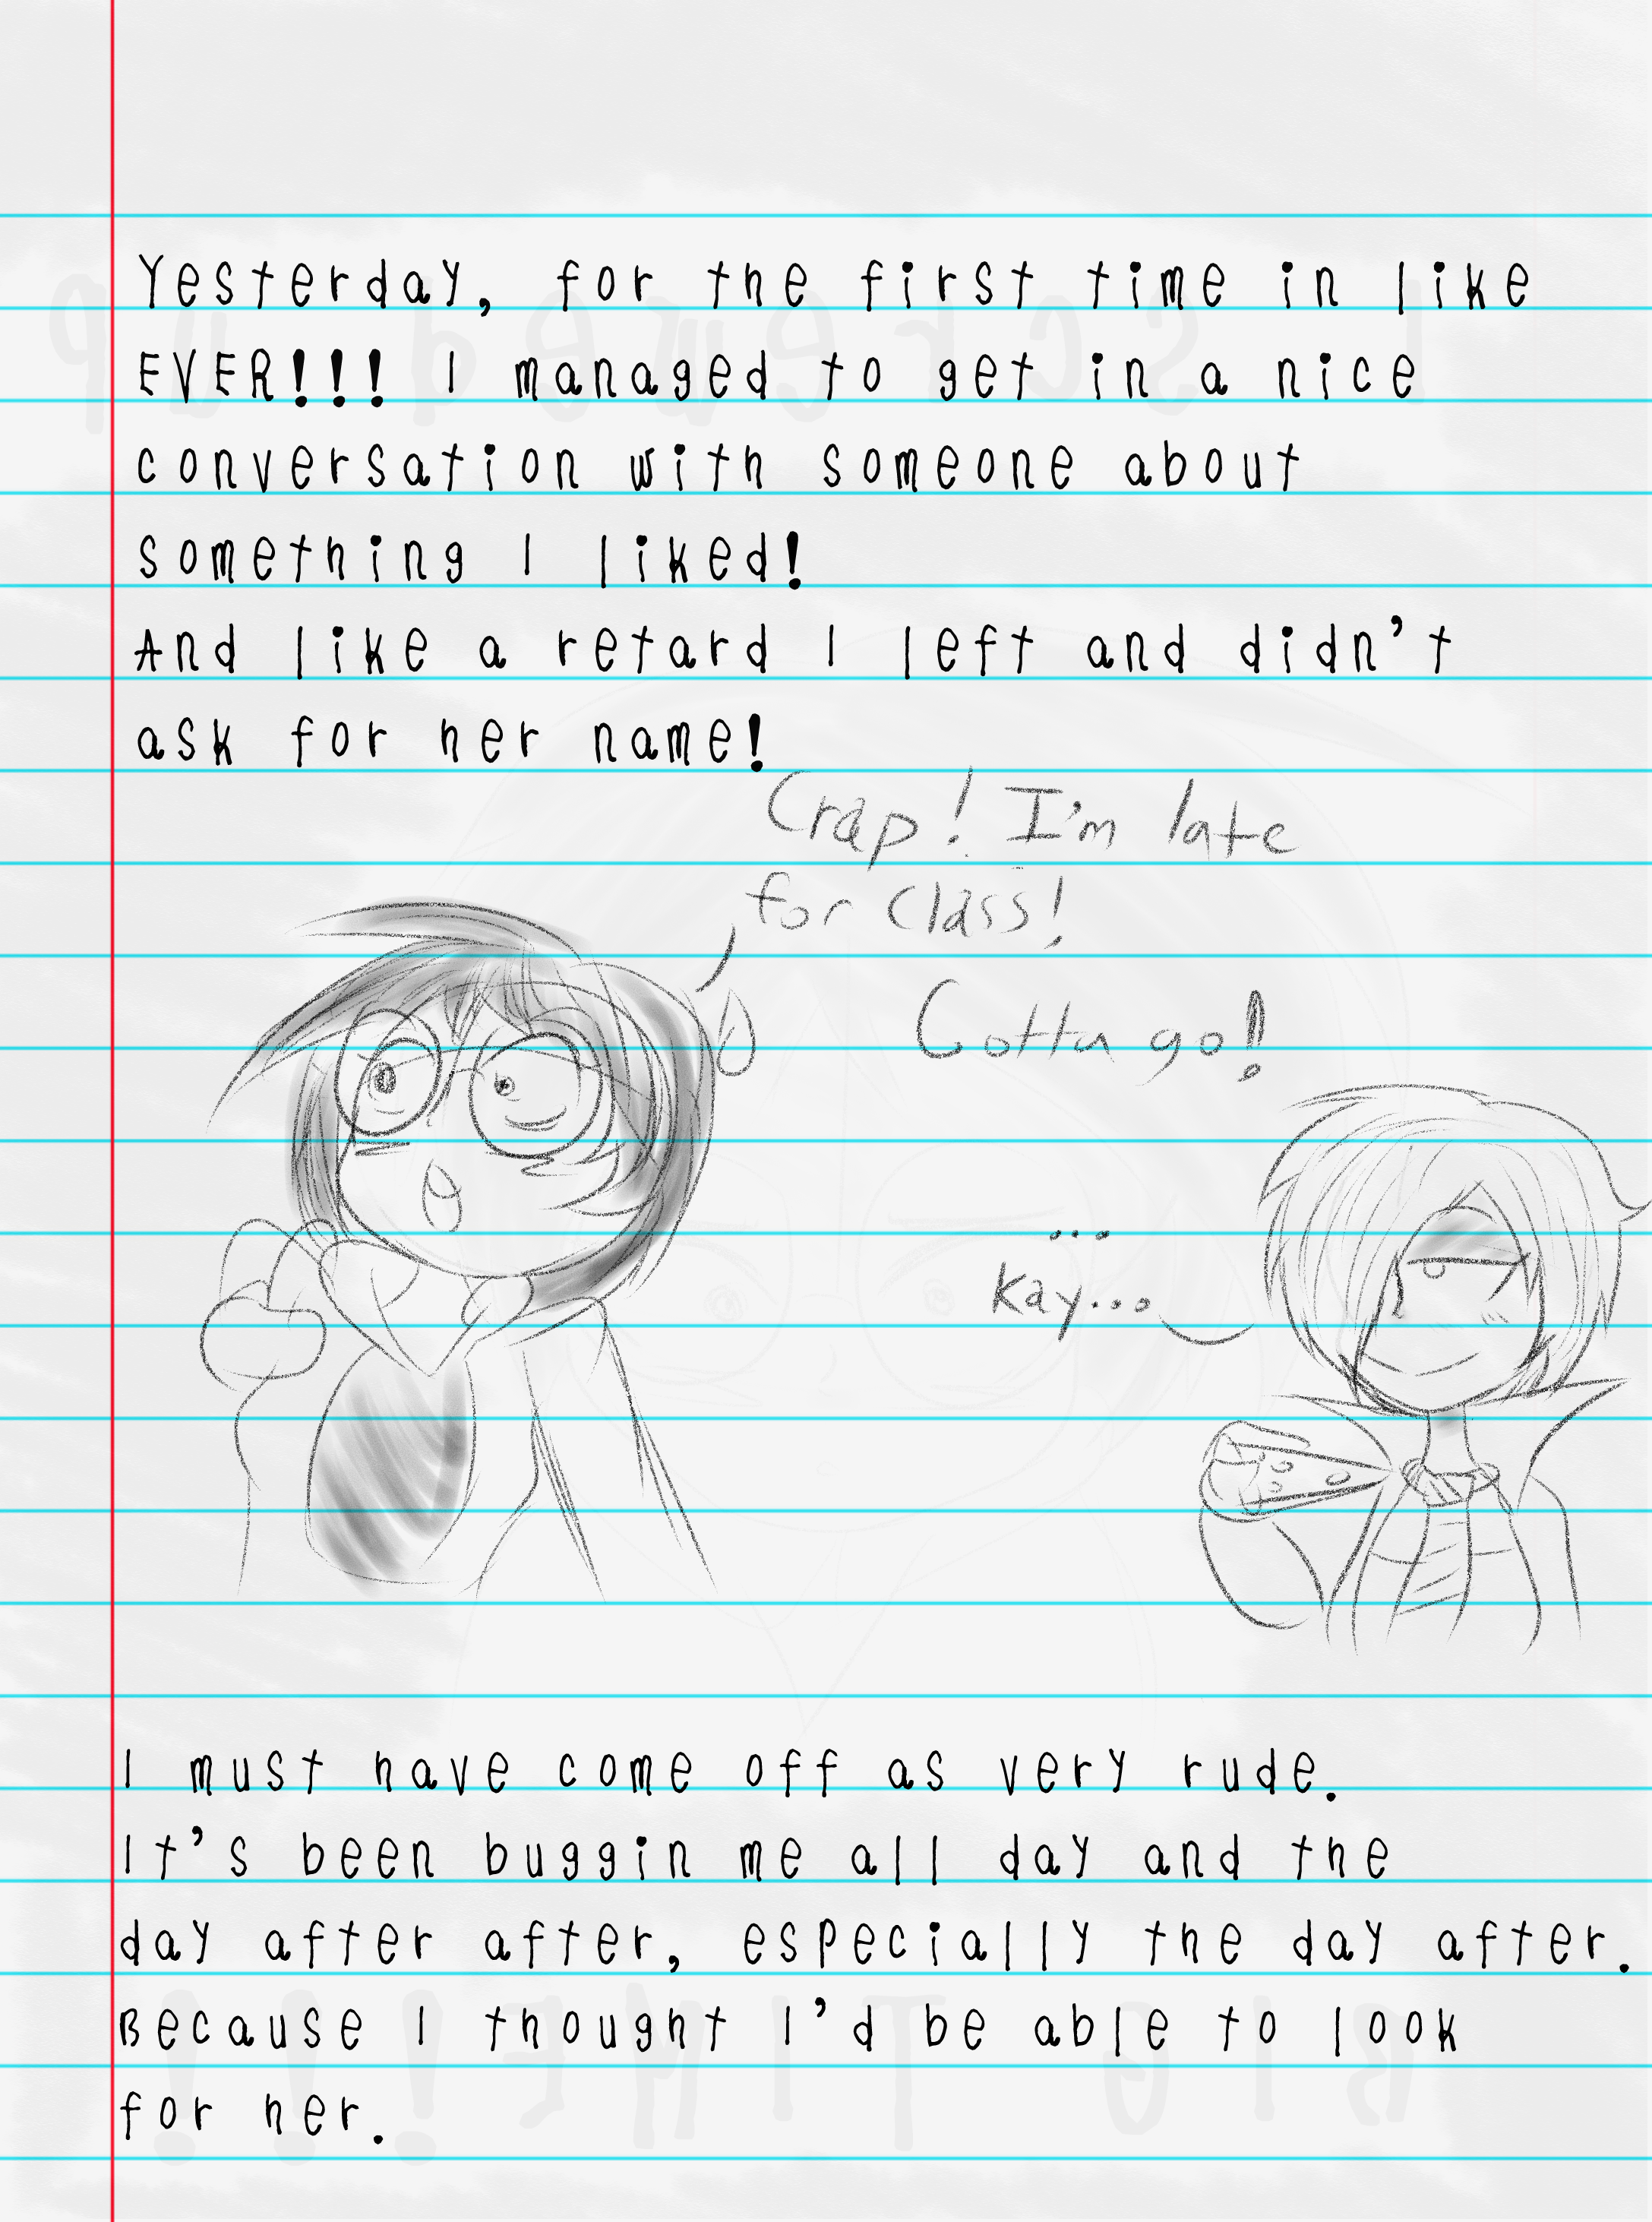 Yesterday, for the first time in like
EVER!!! I managed to get in a nice
conversation with someone about
something I liked!
And like a retard I left and didn't
ask for her name!
Crap! I'm late
for class!
Gotta go!
...
Kay...
I must have come off as very rude.
It's been buggin me all day and the
day after after, especially the day after.
Because I thought I'd be able to look
for her.
I screwed up
BIG TIME!!!